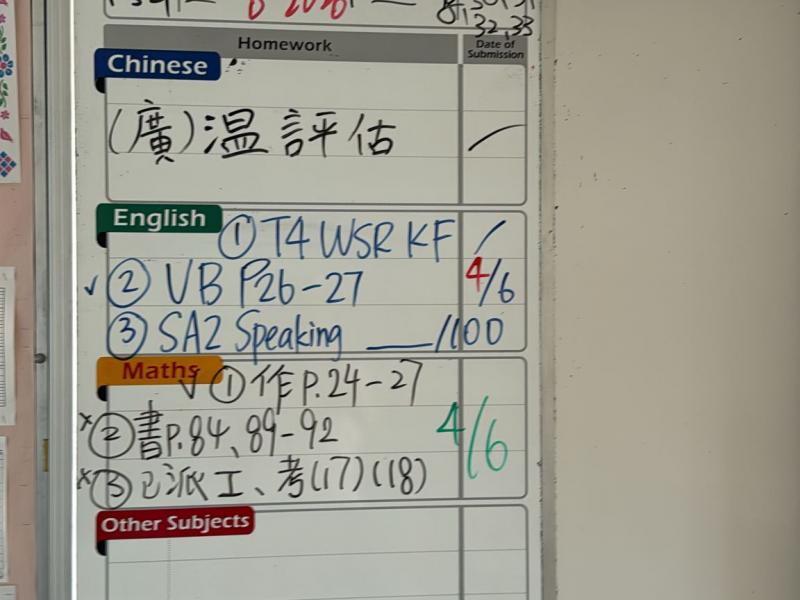 32,33
Homework
Date of Submission
Chinese
(廣)溫評估
English
① T4 WSR KF /
✓ ② VB P26-27 4/6
③ SA2 Speaking ___/100
Maths
✓ ① 作 P.24-27
x ② 書 P.84、89-92 4/6
x ③ 已派工、考(17)(18)
Other Subjects